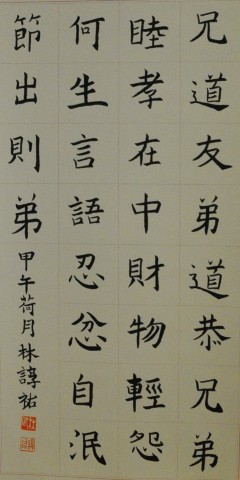 兄道友弟道恭兄弟
睦孝在中財物輕怨
何生言語忍忿自泯
節出則弟
甲午荷月林諄祐